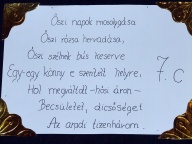 Őszi napok mosolygása
Őszi rózsa hervadása,
Őszi szélnek bús keserve
Egy-egy könny e szentelt helyre,
Hol megváltott -hősi áron-
Becsületet, dicsőséget
Az aradi tizenhárom.
7. C